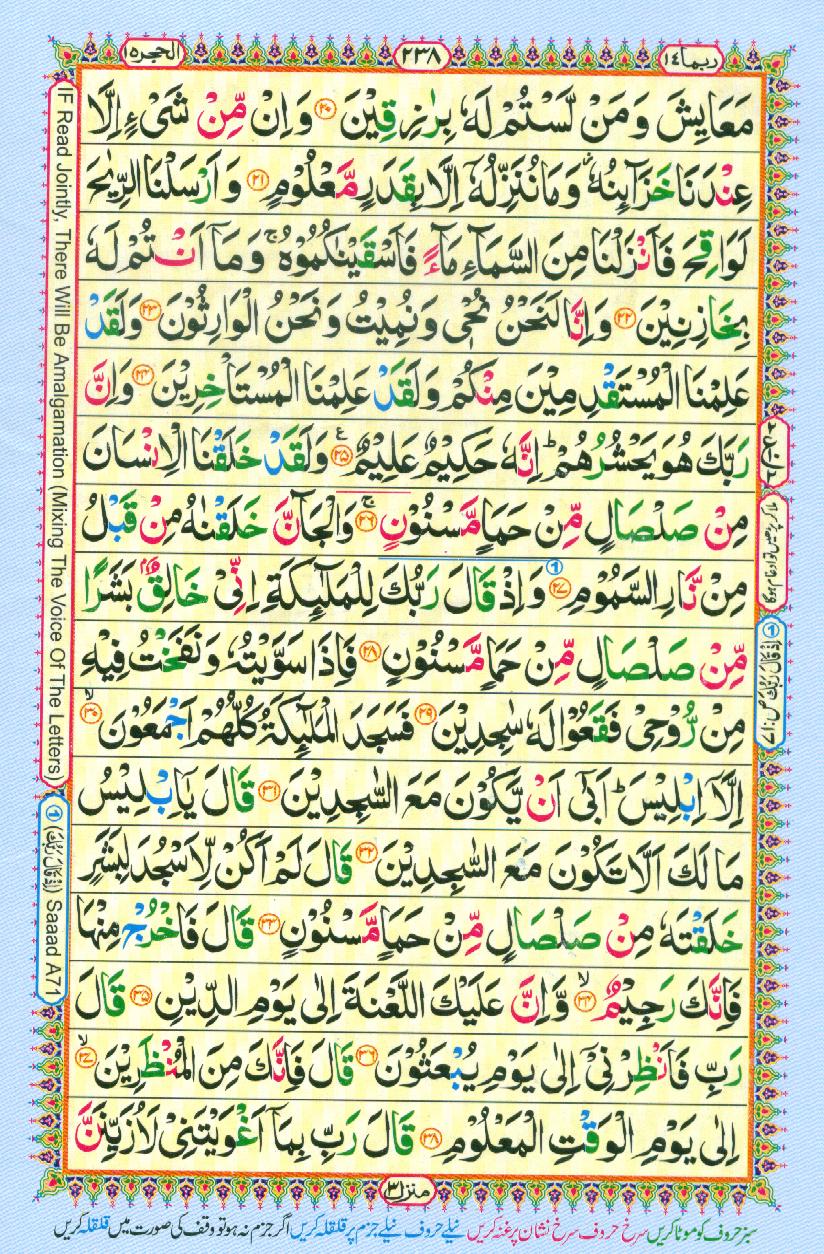 ربما ١٤
٢٣٨
الحجر ١٥
مَعَايِشَ وَمَنْ لَّسْتُمْ لَهٗ بِرٰزِقِيْنَ ٢٠ وَاِنْ مِّنْ شَىْءٍ اِلَّا
عِنْدَنَا خَزَآىِٕنُهٗ ۡ وَمَا نُنَزِّلُهٗٓ اِلَّا بِقَدَرٍ مَّعْلُوْمٍ ٢١ وَاَرْسَلْنَا الرِّيٰحَ
لَوَاقِحَ فَاَنْزَلْنَا مِنَ السَّمَآءِ مَآءً فَاَسْقَيْنٰكُمُوْهُ ۚ وَمَآ اَنْتُمْ لَهٗ
بِخَازِنِيْنَ ٢٢ وَاِنَّا لَنَحْنُ نُحْىٖ وَنُمِيْتُ وَنَحْنُ الْوَارِثُوْنَ ٢٣ وَلَقَدْ
عَلِمْنَا الْمُسْتَقْدِمِيْنَ مِنْكُمْ وَلَقَدْ عَلِمْنَا الْمُسْتَاْخِرِيْنَ ٢٤ وَاِنَّ
رَبَّكَ هُوَ يَحْشُرُهُمْ ؕ اِنَّهٗ حَكِيْمٌ عَلِيْمٌ ٢٥ ع وَلَقَدْ خَلَقْنَا الْاِنْسَانَ
مِنْ صَلْصَالٍ مِّنْ حَمَاٍ مَّسْنُوْنٍ ٢٦ ۚ وَالْجَآنَّ خَلَقْنٰهُ مِنْ قَبْلُ
مِنْ نَّارِ السَّمُوْمِ ٢٧ وَاِذْ قَالَ رَبُّكَ لِلْمَلٰٓىِٕكَةِ اِنِّىْ خَالِقٌۢ بَشَرًا
مِّنْ صَلْصَالٍ مِّنْ حَمَاٍ مَّسْنُوْنٍ ٢٨ فَاِذَا سَوَّيْتُهٗ وَنَفَخْتُ فِيْهِ
مِنْ رُّوْحِىْ فَقَعُوْا لَهٗ سٰجِدِيْنَ ٢٩ فَسَجَدَ الْمَلٰٓىِٕكَةُ كُلُّهُمْ اَجْمَعُوْنَ ٣٠ ۙ
اِلَّآ اِبْلِيْسَ ؕ اَبٰٓى اَنْ يَّكُوْنَ مَعَ السّٰجِدِيْنَ ٣١ قَالَ يٰٓاِبْلِيْسُ
مَا لَكَ اَلَّا تَكُوْنَ مَعَ السّٰجِدِيْنَ ٣٢ قَالَ لَمْ اَكُنْ لِّاَسْجُدَ لِبَشَرٍ
خَلَقْتَهٗ مِنْ صَلْصَالٍ مِّنْ حَمَاٍ مَّسْنُوْنٍ ٣٣ قَالَ فَاخْرُجْ مِنْهَا
فَاِنَّكَ رَجِيْمٌ ٣٤ ۙ وَّاِنَّ عَلَيْكَ اللَّعْنَةَ اِلٰى يَوْمِ الدِّيْنِ ٣٥ قَالَ
رَبِّ فَاَنْظِرْنِىْٓ اِلٰى يَوْمِ يُبْعَثُوْنَ ٣٦ قَالَ فَاِنَّكَ مِنَ الْمُنْظَرِيْنَ ٣٧ ۙ
اِلٰى يَوْمِ الْوَقْتِ الْمَعْلُوْمِ ٣٨ قَالَ رَبِّ بِمَآ اَغْوَيْتَنِىْ لَاُزَيِّنَنَّ
منزل ٣
سبز حروف کو موٹا کریں سرخ حروف سرخ نشان پر غنہ کریں نیلے حروف نیلے جزم پر قلقلہ کریں اگر جزم نہ ہو تو وقف کی صورت میں قلقلہ کریں
IF Read Jointly, There Will Be Amalgamation (Mixing The Voice Of The Letters)
① (اِذْ قَالَ رَبُّكَ) Saaad A71